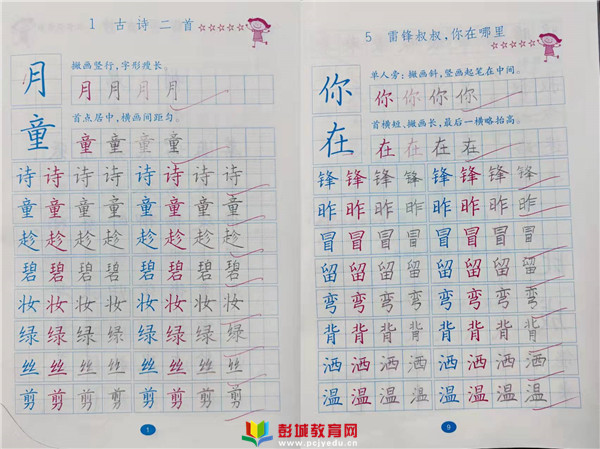 1 古诗二首
月
撇画竖行，字形瘦长。
月 月 月 月
童
首点居中，横画间距匀。
童 童 童 童
诗 诗 诗 诗 诗 诗 诗 诗
童 童 童 童 童 童 童 童
趁 趁 趁 趁 趁 趁 趁 趁
碧 碧 碧 碧 碧 碧 碧 碧
妆 妆 妆 妆 妆 妆 妆 妆
绿 绿 绿 绿 绿 绿 绿 绿
丝 丝 丝 丝 丝 丝 丝 丝
剪 剪 剪 剪 剪 剪 剪 剪
1
5 雷锋叔叔，你在哪里
你
单人旁：撇画斜，竖画起笔在中间。
你 你 你 你
在
首横短、撇画长，最后一横略抬高。
在 在 在 在
锋 锋 锋 锋 锋 锋 锋 锋
昨 昨 昨 昨 昨 昨 昨 昨
冒 冒 冒 冒 冒 冒 冒 冒
留 留 留 留 留 留 留 留
弯 弯 弯 弯 弯 弯 弯 弯
背 背 背 背 背 背 背 背
洒 洒 洒 洒 洒 洒 洒 洒
温 温 温 温 温 温 温 温
9
彭城教育网
www.pcjyedu.cn